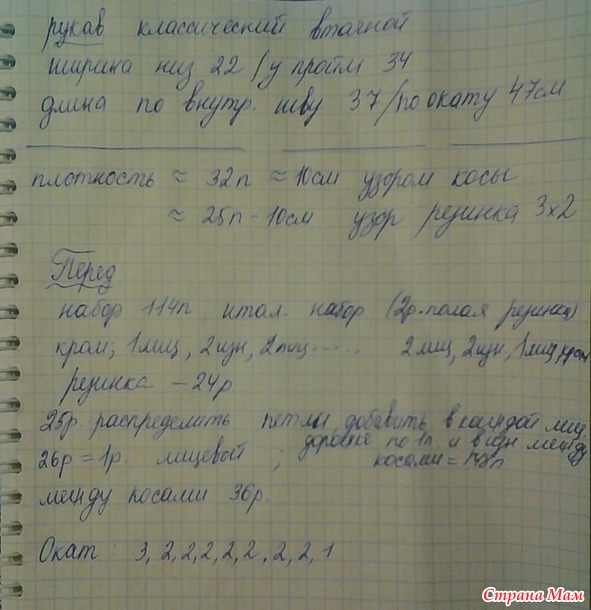 рукав классический втачной
ширина низ 22 / у пройм 34
длина по внутр. шву 37 / по окату 47см
плотность ≈ 32п ≈ 10см узором косы
≈ 25п - 10см узор резинка 3х2
Перед
набор 114п итал. набор (2р-полая резинка)
кром, 1лиц, 2изн, 2лиц..... 2лиц, 2изн, 1лиц, кром
резинка - 24р
25р распределить петли, добавить в каждой лиц
дорожке по 1п. и в изн между
26р = 1р. лицевой ;
косами =
между косами 36р.
Окат : 3, 2, 2, 2, 2, 2, 2, 2, 1
Страна Мам